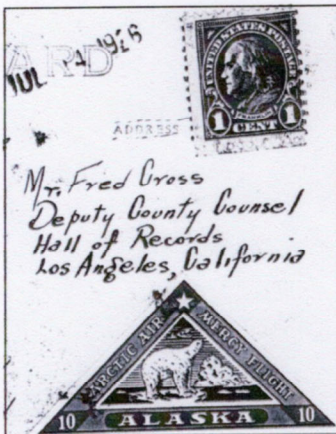 ARD
JUL 1926
UNITED STATES POSTAGE
FRANKLIN
1 CENT 1
ADDRESS
Mr. Fred Cross
Deputy County Counsel
Hall of Records
Los Angeles, California
ARCTIC AIR MERCY FLIGHT
10 ALASKA 10